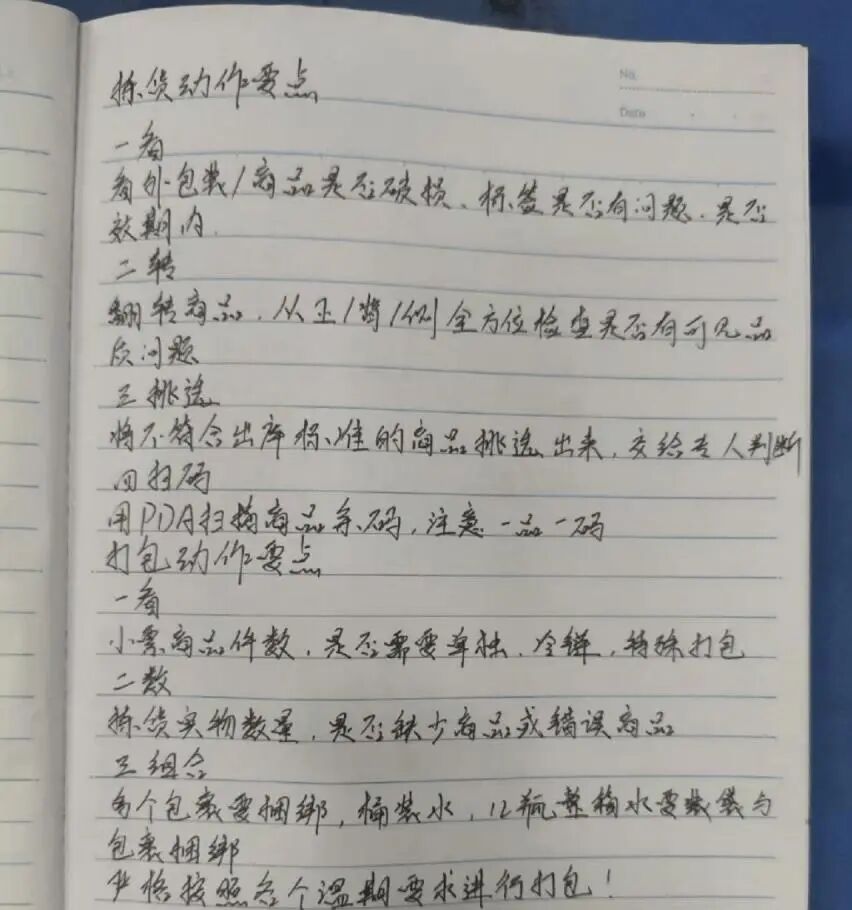 No.
Date
拣货动作要点
一看
看外包装/商品是否破损、标签是否有问题、是否
效期内.
二转
翻转商品,从正/背/侧全方位检查是否有可见品
质问题
三挑选
将不符合出库标准的商品挑选出来,交给专人判断
四扫码
用PDA扫描商品条码,注意一品一码
打包动作要点
一看
小票商品件数,是否需要单独、冷链,特殊打包
二数
拣货实物数量,是否缺少商品或错误商品
三组合
多个包裹要捆绑,桶装水,12瓶整箱水要装袋与
包裹捆绑
严格按照各个温期要求进行打包!